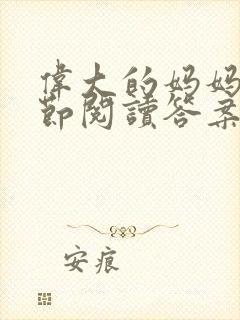 偉大的媽媽
節閱讀答案
安痕